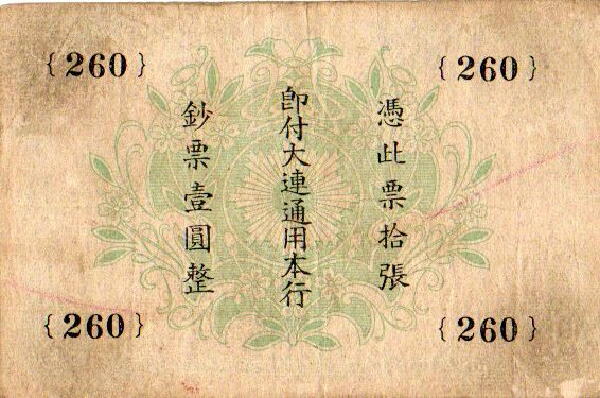 {260}
{260}
憑此票拾張
即付大連通用本行
鈔票壹圓整
{260}
{260}